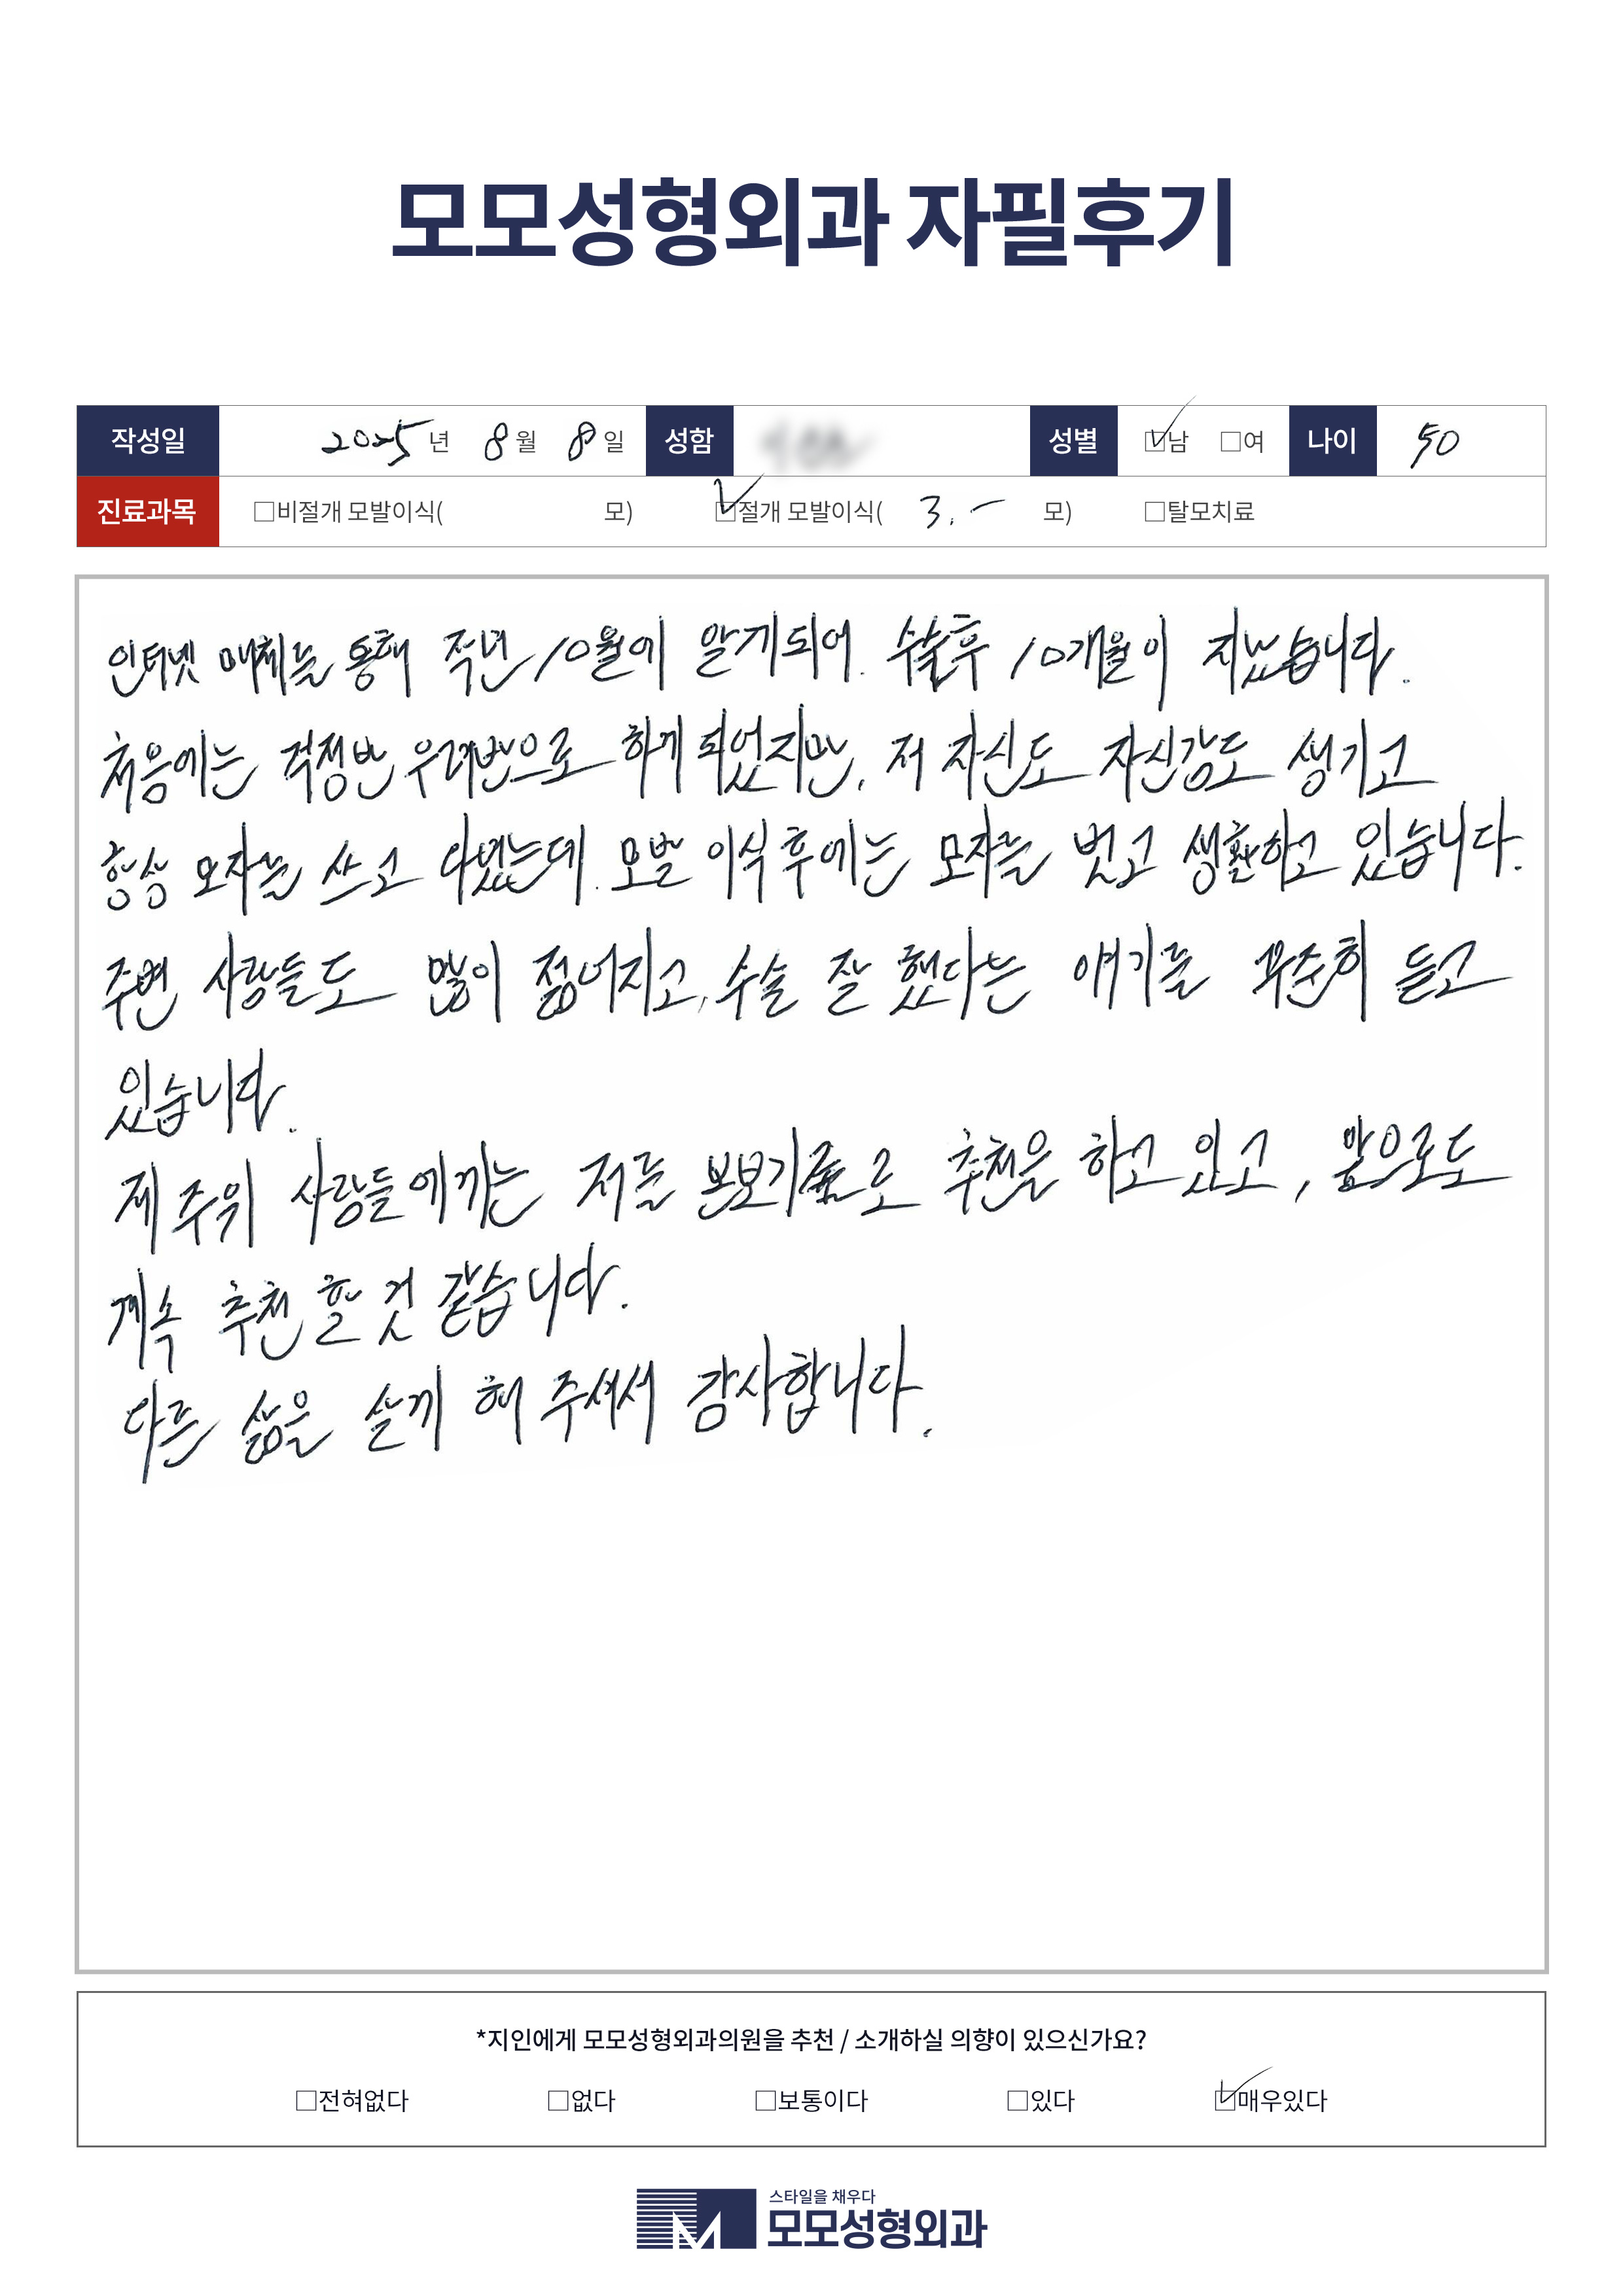 모모성형외과 자필후기
작성일 2025 년 8 월 8 일 성함 성별 ☑남 □여 나이 50
진료과목 □비절개 모발이식( 모) ☑절개 모발이식( 3.- 모) □탈모치료
인터넷 매체를 통해 작년 10월에 알게되어. 수술후 10개월이 지났습니다.
처음에는 걱정반 우려반으로 하게 되었지만, 저 자신도 자신감도 생기고
항상 모자를 쓰고 다녔는데. 모발 이식 후에는 모자를 벗고 생활하고 있습니다.
주변 사람들도 많이 젊어지고, 수술 잘 했다는 얘기를 꾸준히 듣고
있습니다.
제 주위 사람들에게는 저를 본보기로 추천을 하고 있고, 앞으로도
계속 추천 할 것 같습니다.
다른 삶을 살게 해 주셔서 감사합니다.
*지인에게 모모성형외과의원을 추천 / 소개하실 의향이 있으신가요?
□전혀없다 □없다 □보통이다 □있다 ☑매우있다
스타일을 채우다
모모성형외과